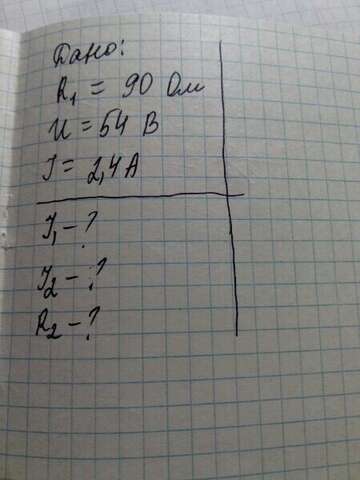 Дано:
R₁ = 90 Ом
U = 54 В
I = 2,4 А
I₁ - ?
I₂ - ?
R₂ - ?